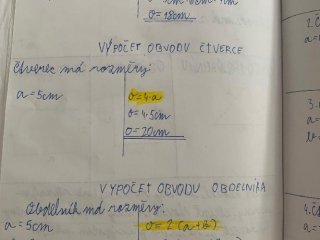 o = 18cm
VÝPOČET OBVODU ČTVERCE
Čtverec má rozměry:
a = 5cm
o = 4·a
o = 4·5cm
o = 20cm
VÝPOČET OBVODU OBDÉLNÍKA
Obdélník má rozměry:
a = 5cm
o = 2·(a+b)